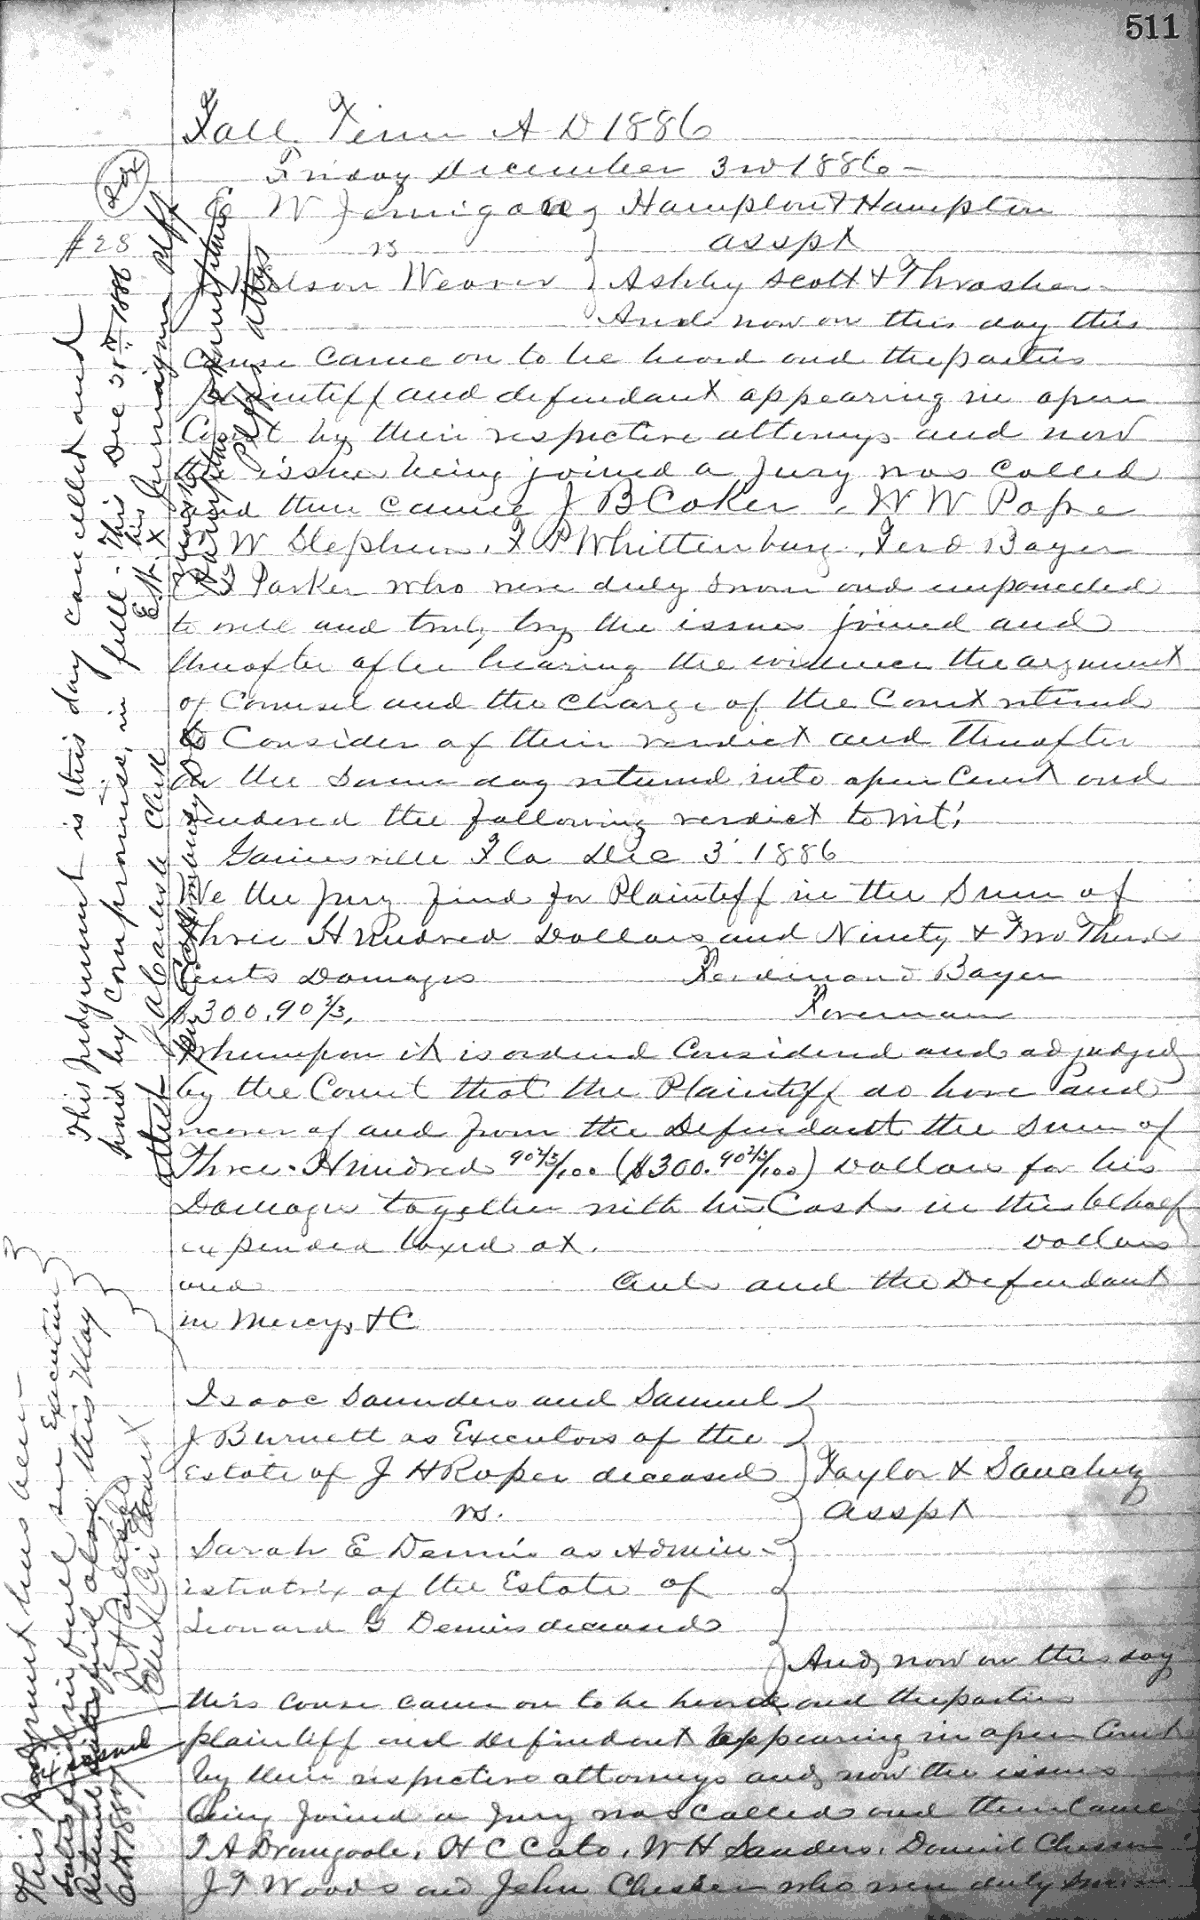 511
Fall Term A D 1886
Friday December 3rd 1886
E W Jernigan } Hampton & Hampton
#28 vs asspt
Wilson Weaver } Ashby Scott & Thrasher
And now on this day this
cause came on to be heard and the parties
plaintiff and defendant appearing in open
Court by their respective attorneys and now
the issue being joined a Jury was called
and then came J B Coker, W W Pope
W Stephens, F P Whittenburg, Ferd Bayer
F Parker who were duly sworn and empaneled
to well and truly try the issues joined and
thereafter after hearing the evidence the argument
of Counsel and the charge of the Court retired
to Consider of their verdict and thereafter
on the same day returned into open Court and
rendered the following verdict to wit:
Gainesville Fla Dec 3 1886
We the Jury find for Plaintiff in the Sum of
Three Hundred Dollars and Ninety & Two Thirds
Cents Damages Ferdinand Bayer
$300.90 2/3, Foreman
Whereupon it is ordered Considered and adjudged
by the Court that the Plaintiff do have and
recover of and from the Defendant the Sum of
Three Hundred 90 2/3/100 ($300.90 2/3/100) Dollars for his
Damages together with his Costs in this behalf
expended taxed at. Dollars
and Cents and the Defendant
in Mercy, &C
Isaac Saunders and Samuel
J Burnett as Executors of the
Estate of J H Roper deceased } Taylor & Sanchez
vs. asspt
Sarah E Dennis as Admin-
istratrix of the Estate of
Leonard G Dennis deceased
And now on this day
this cause came on to be heard and the parties
plaintiff and defendant appearing in open Court
by their respective attorneys and now the issues
being joined a Jury was called and then came
T A Dromgoole, H C Cato, W H Sanders, Daniel
J T Woods and John Chesser who were duly sworn
This Judgment is this day cancelled and
paid by compromise, in full. This Dec 31st 1886
his
E W X Jernigan Plff
attest J A Carlisle Clerk
Hampton & Hampton
Plffs attys
This Judgment has been
satisfied in full see Execution
Returned and also this May
Clk Cir Court